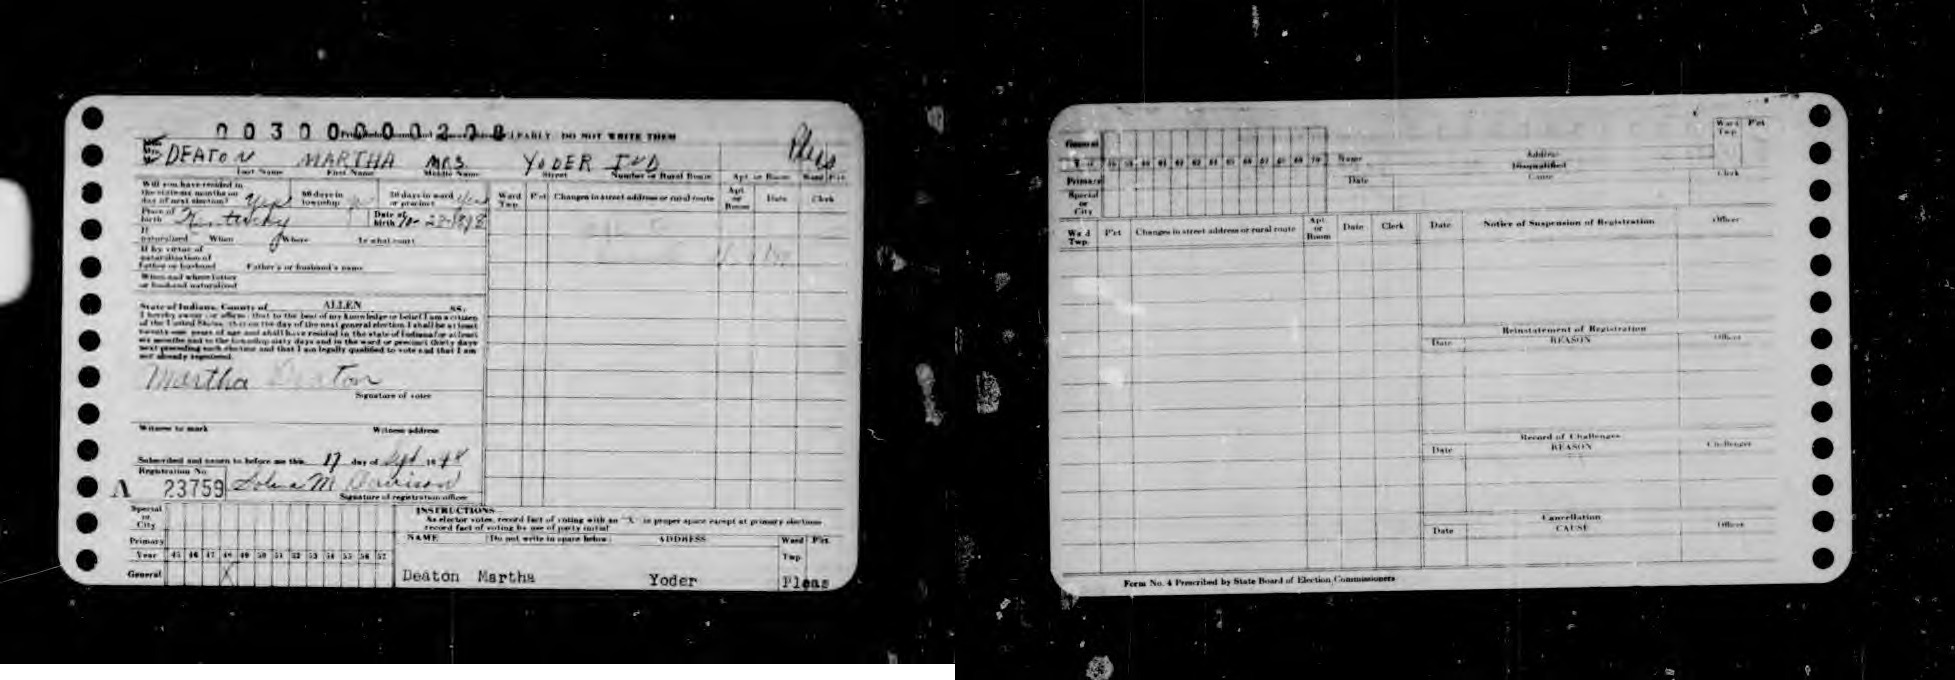 00300000208
PLAINLY DO NOT WRITE THEM
DEATON MARTHA MRS. YODER IND Pleas
Last Name First Name Middle Name Street Number or Rural Route Apt. or Room Ward Pct.
Will you have resided in
the state six months on
day of next election? Yes 60 days in township 30 days in ward or precinct Yes
Ward Twp. P'ct Changes in street address or rural route Apt. or Room Date Clerk
Place of birth Kentucky Date of birth 10-22-1898
If naturalized When Where In what court
If by virtue of
naturalization of
Father or husband Father's or husband's name
When and where father
or husband naturalized
State of Indiana, County of ALLEN SS:
I hereby swear (or affirm) that to the best of my knowledge or belief I am a citizen
of the United States, that on the day of the next general election I shall be at least
twenty-one years of age and shall have resided in the state of Indiana for at least
six months and in the township sixty days and in the ward or precinct thirty days
next preceding such election and that I am legally qualified to vote and that I am
not already registered.
Martha Deaton
Signature of voter
Witness to mark Witness address
Subscribed and sworn to before me this 17 day of Sept 1948
Registration No.
A 23759 M Davison
Signature of registration officer
Special or City
Primary
Year 45 46 47 48 49 50 51 52 53 54 55 56 57
General X
INSTRUCTIONS
As elector votes, record fact of voting with an "X" in proper space except at primary elections
record fact of voting by use of party initial
NAME (Do not write in space below) ADDRESS Ward Twp. Pct.
Deaton Martha Yoder Pleas
General
Primary
Special or City
Name Address Ward Twp. P'ct
Disqualified
Date Cause Clerk
Ward Twp. P'ct Changes in street address or rural route Apt. or Room Date Clerk
Date Notice of Suspension of Registration Officer
Reinstatement of Registration
Date REASON Officer
Record of Challenges
Date REASON Challenger
Cancellation
Date CAUSE Officer
Form No. 4 Prescribed by State Board of Election Commissioners